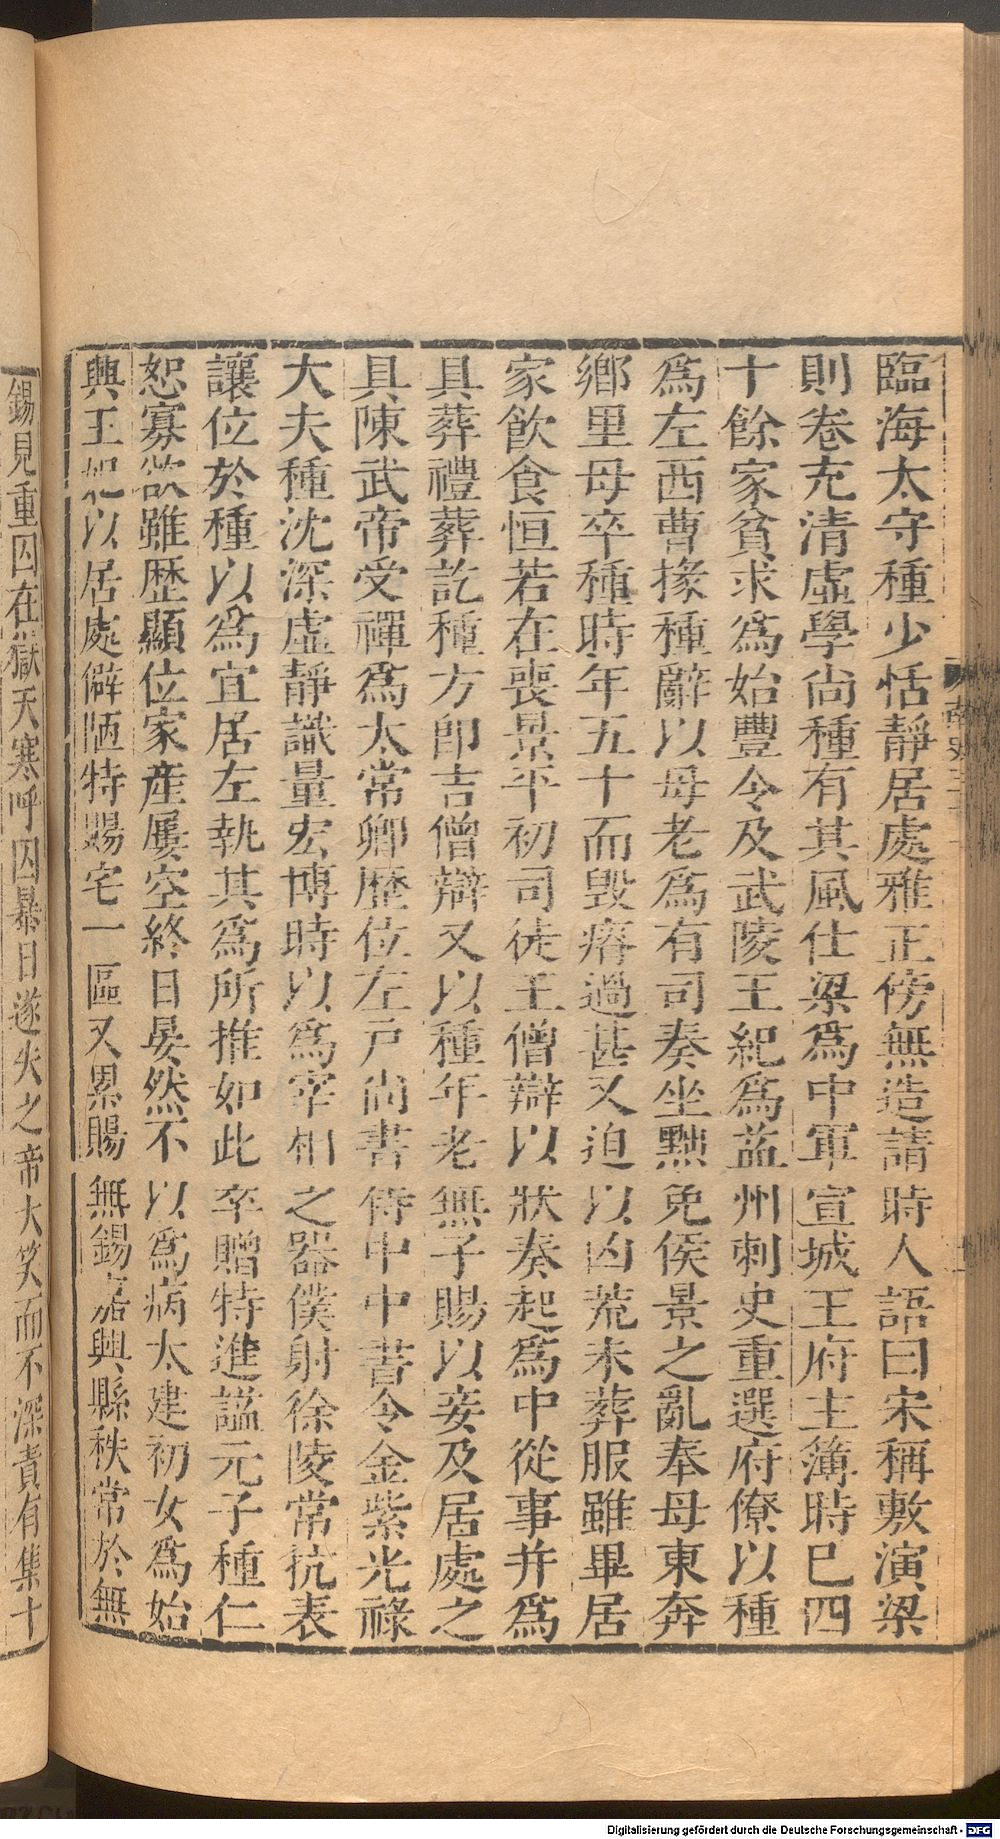 臨海太守種少恬靜居處雅正傍無造請時人語曰宋稱敷演梁
則卷充清虛學尚種有其風仕梁爲中軍宣城王府主簿時已四
十餘家貧求爲始豐令及武陵王紀爲益州刺史重選府僚以種
爲左西曹掾種辭以母老爲有司奏坐黜免侯景之亂奉母東奔
鄉里母卒種時年五十而毀瘠過甚又迫以凶荒未葬服雖畢居
家飲食恒若在喪景平初司徒王僧辯以狀奏起爲中從事并爲
具葬禮葬訖種方即吉僧辯又以種年老無子賜以妾及居處之
具陳武帝受禪爲太常卿歷位左戶尚書侍中中書令金紫光祿
大夫種沈深虛靜識量宏博時以爲宰相之器僕射徐陵常抗表
讓位於種以爲宜居左執其爲所推如此卒贈特進諡元子種仁
恕寡欲雖歷顯位家產屢空終日晏然不以爲病太建初女爲始
興王妃以居處僻陋特賜宅一區又累賜無錫嘉興縣秩常於無
錫見重囚在獄天寒呼囚暴日遂失之帝大笑而不深責有集十
南史三十一
Digitalisierung gefördert durch die Deutsche Forschungsgemeinschaft - DFG